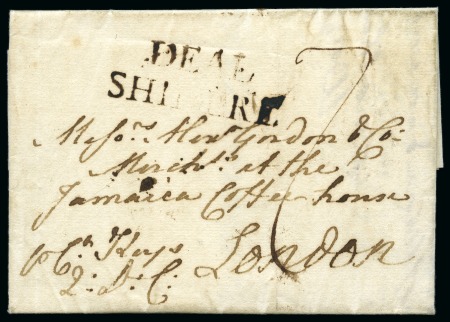 DEAL
SHIP LRE
7
Messrs. Alexr Gordon & Co:
Merchts. at the
Jamaica Coffee house
London
p Ct. Keys
2: D: C.